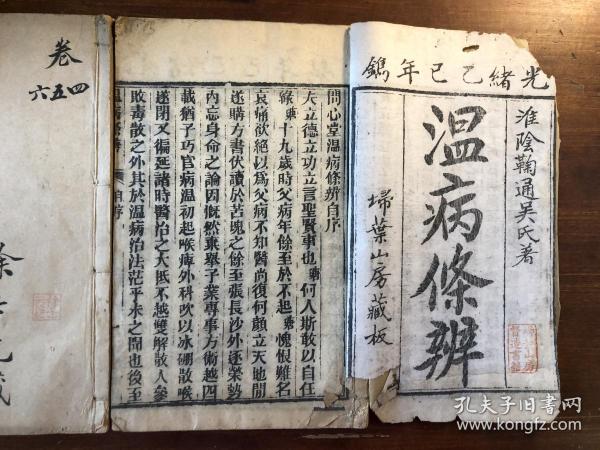 光緒乙巳年鐫
淮陰鞠通吳氏著
温病條辨
埽葉山房藏板
問心堂温病條辨自序
夫立德立功立言聖賢事也瑭何人斯敢以自任
緣瑭十九歲時父病年餘至於不起瑭愧恨難名
哀痛欲絶以為父病不知醫尚復何顏立天地間
遂購方書伏讀於苫塊之餘至張長沙外逐榮勢
內忘身命之論因慨然棄舉子業專事方術越四
載猶子巧官病温初起喉痺外科吹以冰硼散喉
遂閉又徧延諸時醫治之大抵不越雙解散人參
敗毒散之外其於温病治法茫乎未之聞也後至
自序
卷
四五六
孔夫子旧书网
www.kongfz.com